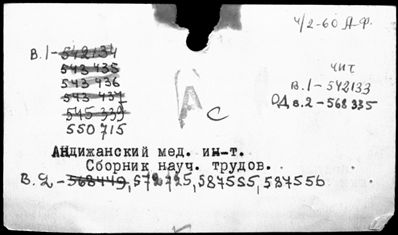 4/2-60 А.Ф.
В.1-542134
543 435
543 436
543 437
545 339
550715
А
С
чит
В.1-542133
ОД в.2-568335
Андижанский мед. ин-т.
Сборник науч. трудов.
В.2-568449, 572725, 587555, 587556